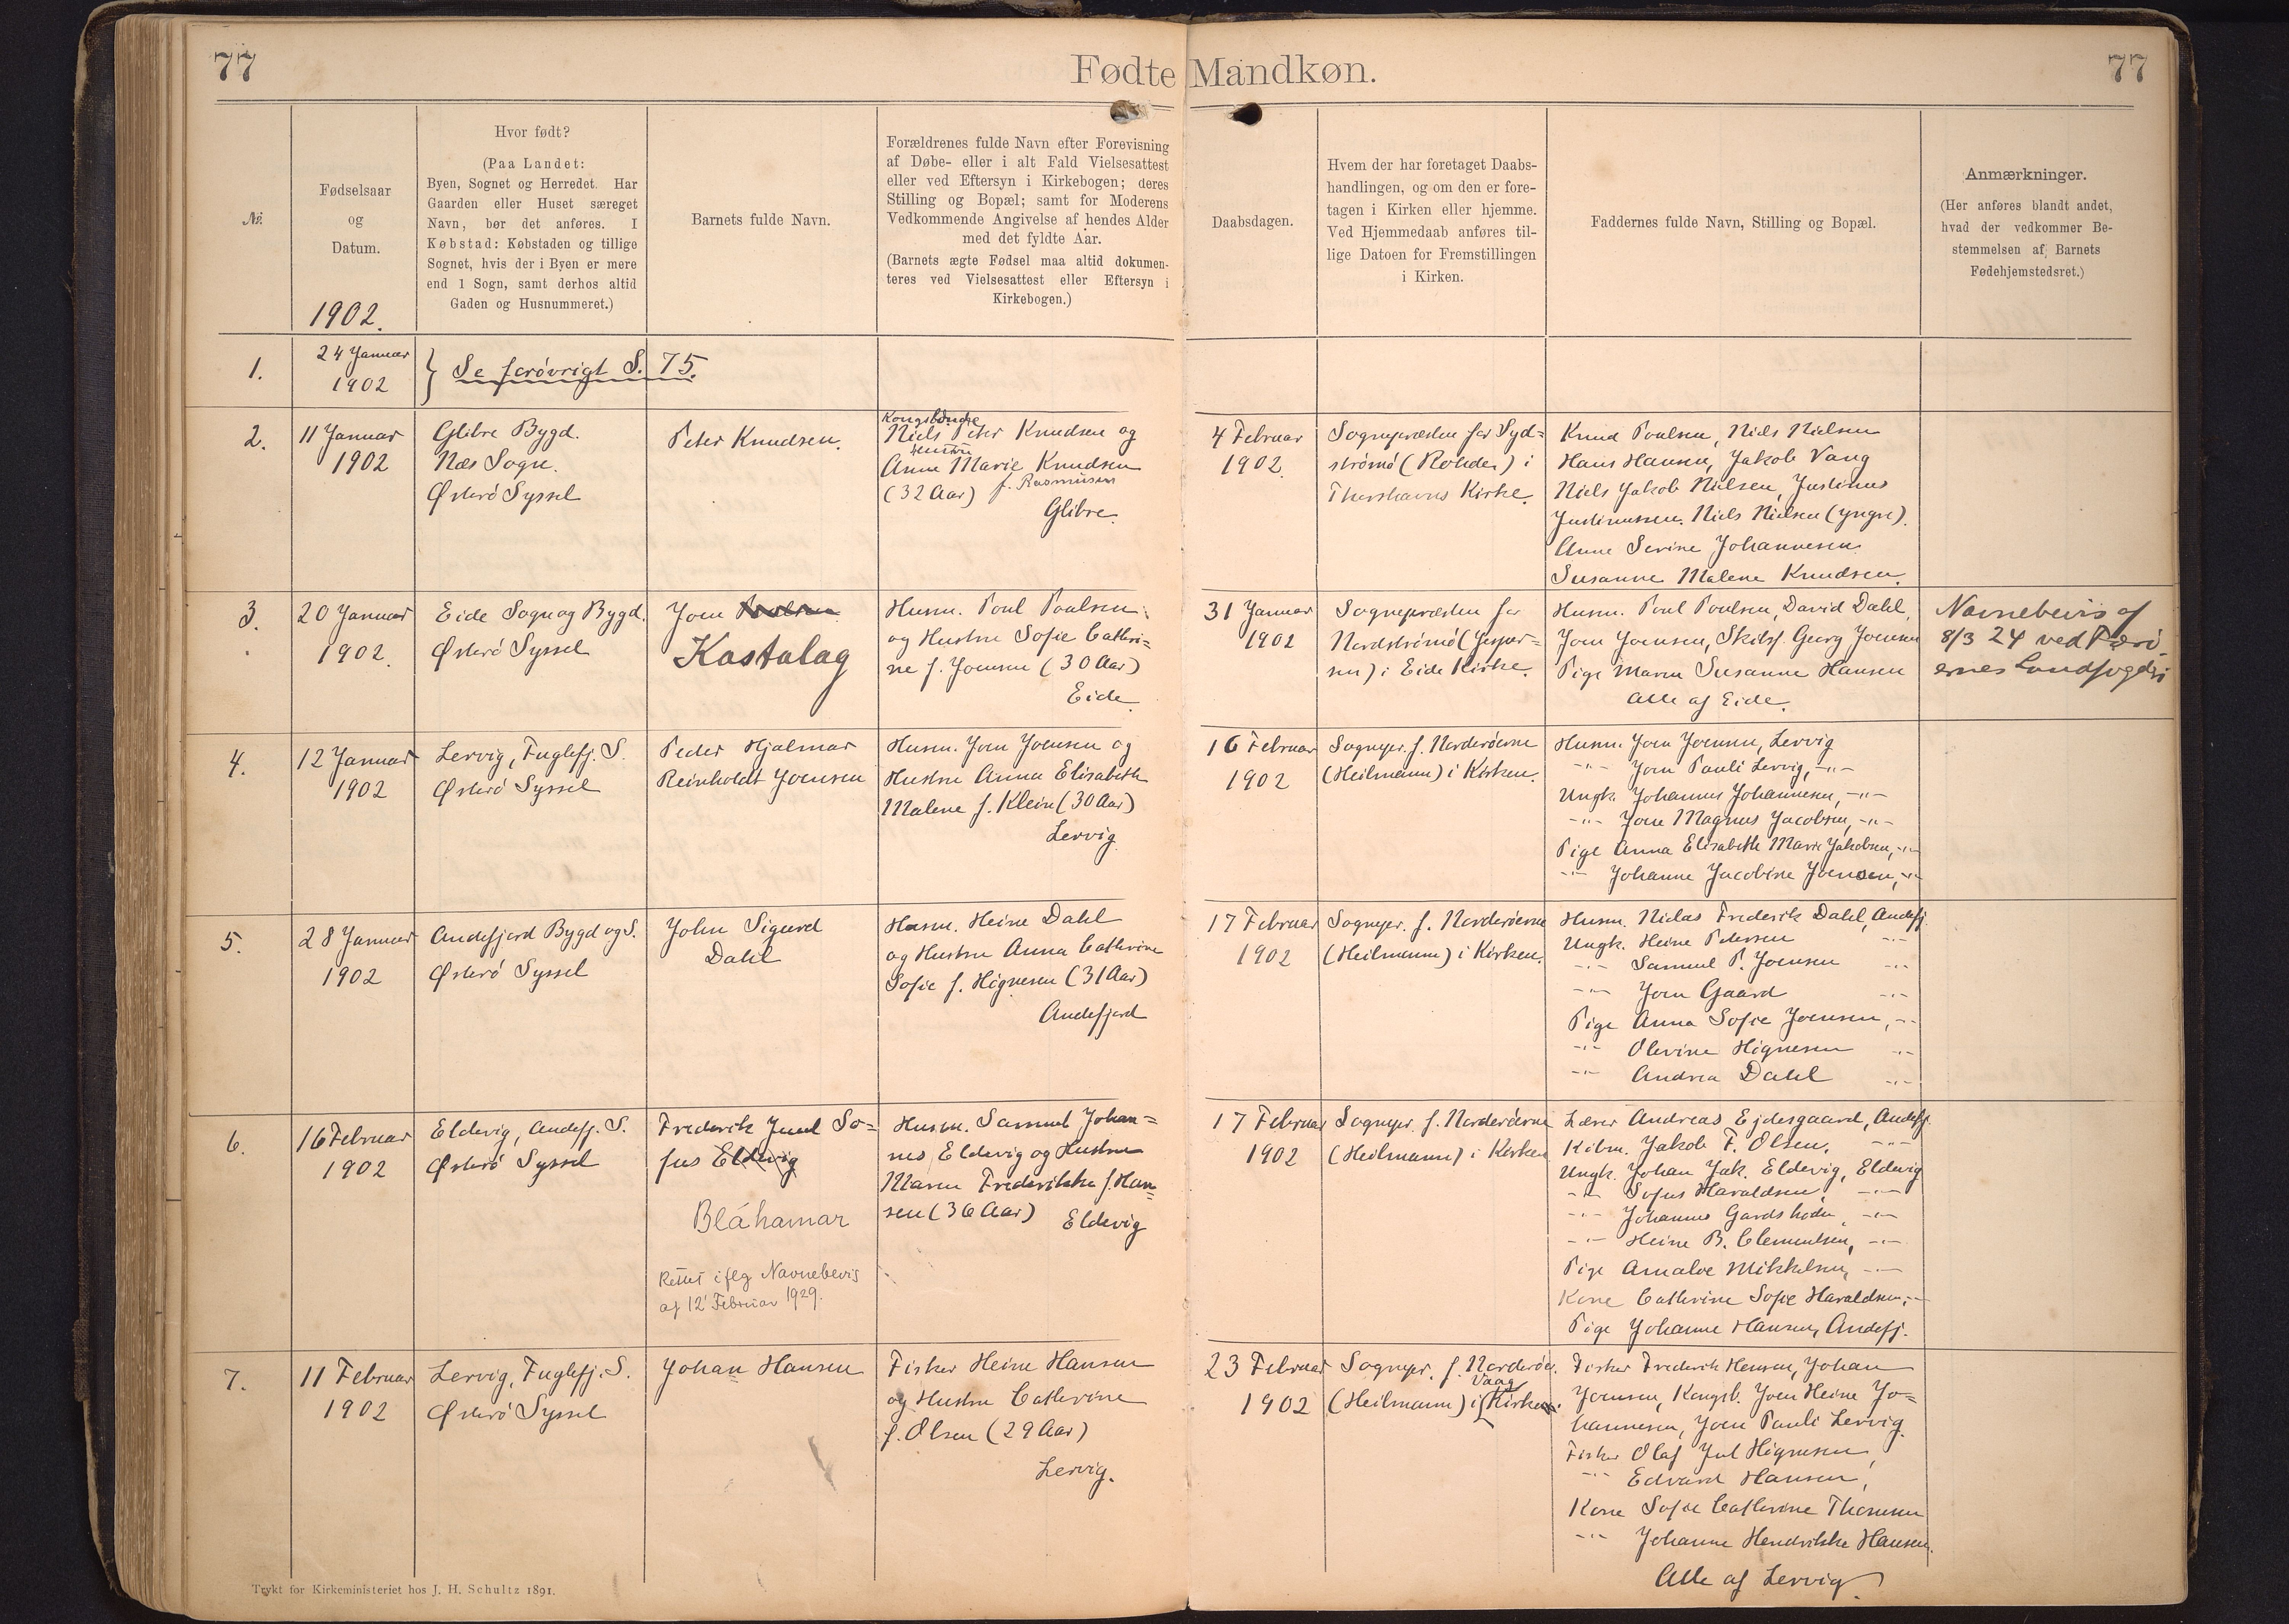 77
Fødte Mandkøn.
77
№.
Fødselsaar
og
Datum.
1902.
Hvor født?
(Paa Landet:
Byen, Sognet og Herredet. Har
Gaarden eller Huset særeget
Navn, bør det anføres. I
Købstad: Købstaden og tillige
Sognet, hvis der i Byen er mere
end 1 Sogn, samt derhos altid
Gaden og Husnummeret.)
Barnets fulde Navn.
Forældrenes fulde Navn efter Forevisning
af Døbe- eller i alt Fald Vielsesattest
eller ved Eftersyn i Kirkebogen; deres
Stilling og Bopæl; samt for Moderens
Vedkommende Angivelse af hendes Alder
med det fyldte Aar.
(Barnets ægte Fødsel maa altid dokumen-
teres ved Vielsesattest eller Eftersyn i
Kirkebogen.)
Daabsdagen.
Hvem der har foretaget Daabs-
handlingen, og om den er fore-
tagen i Kirken eller hjemme.
Ved Hjemmedaab anføres til-
lige Datoen for Fremstillingen
i Kirken.
Faddernes fulde Navn, Stilling og Bopæl.
Anmærkninger.
(Her anføres blandt andet,
hvad der vedkommer Be-
stemmelsen af Barnets
Fødehjemstedsret.)
1.
24 Januar
1902
Se forøvrigt S. 75.
2.
11 Januar
1902
Glibre Bygd.
Næs Sogn.
Østerö Syssel
Peter Knudsen.
Kongsbonde
Niels Peter Knudsen og
Hustru
Anne Marie Knudsen
(32 Aar) f. Rasmussen
Glibre.
4 Februar
1902.
Sognepræsten for Syd=
strömö (Rohde) i
Thorshavns Kirke.
Knud Poulsen, Niels Nielsen
Hans Hansen, Jakob Vang
Niels Jakob Nielsen, Justinus
Justinussen. Niels Nielsen (yngre).
Anne Sevine Johannesen
Susanne Malene Knudsen.
3.
20 Januar
1902.
Eide Sogn og Bygd.
Østerö Syssel
Joen Poulsen
Kastalag
Husm. Poul Poulsen
og Hustru Sofie Cathri=
ne f. Joensen (30 Aar)
Eide.
31 Januar
1902
Sognepræsten for
Nordströmö (Jesper-
sen) i Eide Kirke.
Husm. Poul Poulsen, David Dahl,
Joen Joensen, Georg Joensen
Pige Maren Susanne Hansen
Alle af Eide.
Navnebevis af
8/3 24 ved Færö
ernes Landfogderi
4.
12 Januar
1902
Lervig, Fuglefj. S.
Østerö Syssel
Peder Hjalmar
Reinholdt Joensen
Husm. Joen Joensen og
Hustru Anna Elisabeth
Malene f. Klein (30 Aar)
Lervig
16 Februar
1902
Sognepr. f. Norderöerne
(Heilmann) i Kirken.
Husm. Joen Joensen, Lervig
-"- Joen Pauli Lervig, -"-
Ungk. Johannes Johannesen, -"-
-"- Joen Magnus Jacobsen, -"-
Pige Anna Elisabeth Marie Jakobsen, -"-
-"- Johanne Jacobine Joensen, -"-
5.
28 Januar
1902
Andefjord Bygd og S.
Østerö Syssel
John Sigurd
Dahl
Husm. Heine Dahl
og Hustru Anna Cathrine
Sofie f. Högnesen (31 Aar)
Andefjord
17 Februar
1902
Sognepr. f. Norderöerne
(Heilmann) i Kirken.
Husm. Niclas Frederik Dahl, Andefj.
Ungk. Heine Petersen -"-
-"- Samuel P. Joensen -"-
-"- Joen Gaard -"-
Pige Anna Sofie Joensen, -"-
-"- Olevine Högnesen -"-
-"- Andrea Dahl -"-
6.
16 Februar
1902
Eldevig, Andefj. S.
Østerö Syssel
Frederik Juul So=
fus Eldevig
Bláhamar
Rettet iflg Navnebevis
af 12' Februar 1929.
Husm. Samuel Johan=
nes Eldevig og Hustru
Maren Frederikke f. Han=
sen (36 Aar)
Eldevig
17 Februar
1902
Sognepr. f. Norderöerne
(Heilmann) i Kirken
Lærer Andreas Ejdesgaard, Andefj.
Köbm. Jakob F. Olsen, -"-
Ungk. Johan Jak. Eldevig, Eldevig
-"- Sofus Haraldsen, -"-
-"- Johannes -"-
-"- Heine B. Clementsen, -"-
Pige Amalie Mikkelsen, -"-
Kone Cathrine Sofie Haraldsen, -"-
Pige Johanne Hansen, Andefj.
7.
11 Februar
1902
Lervig, Fuglefj. S.
Østerö Syssel
Johan Hansen
Fisker Heine Hansen
og Hustru Cathrine
f. Olsen (29 Aar)
Lervig.
23 Februar
1902
Sognepr. f. Norderöe.
Vaag
(Heilmann) i Kirken.
Fisker Frederik Hansen, Johan
Joensen, Kongsb. Joen Heine Jo=
hannesen, Joen Pauli Lervig
Fisker Olaf Jul Högnesen,
-"- Edvard Hansen,
Kone Sofie Cathrine Thomsen
-"- Johanne Hendrikke Hansen.
Alle af Lervig
Trykt for Kirkeministeriet hos J. H. Schultz 1891.